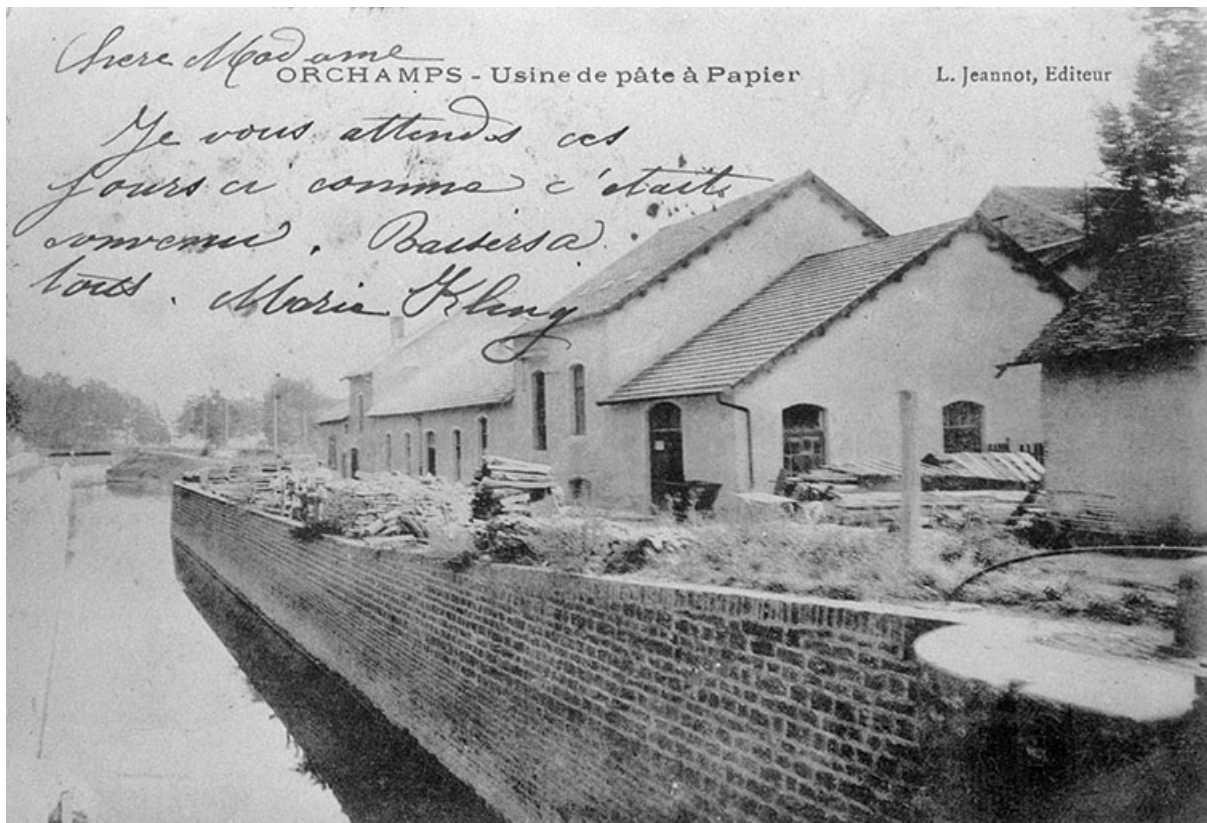 Chere Madame
ORCHAMPS - Usine de pâte à Papier
L. Jeannot, Editeur
Je vous attends ces
jours ci comme c'était
convenu. Baisers a
tous. Marie Kling